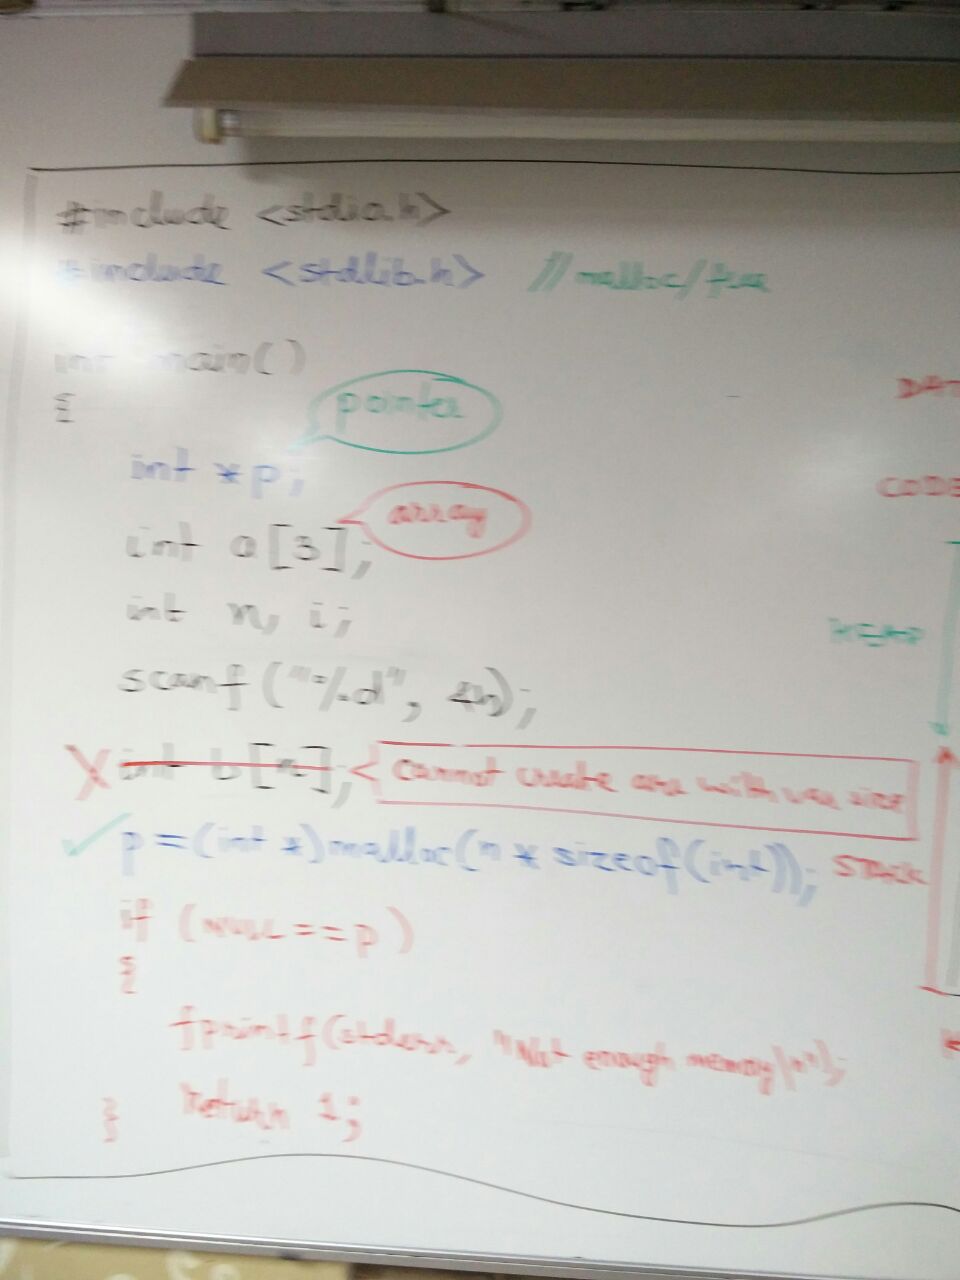 #include <stdio.h>
#include <stdlib.h> //malloc/free
int main()
{
pointer
int *p;
array
int a[3];
int n, i;
scanf("%d", &n);
X int b[n]; cannot create are with var size
✓ p=(int *)malloc(n * sizeof(int));
if (NULL==p)
{
fprintf(stderr, "Not enough memory\n");
return 1;
}
DAT
CODE
HEAP
STACK